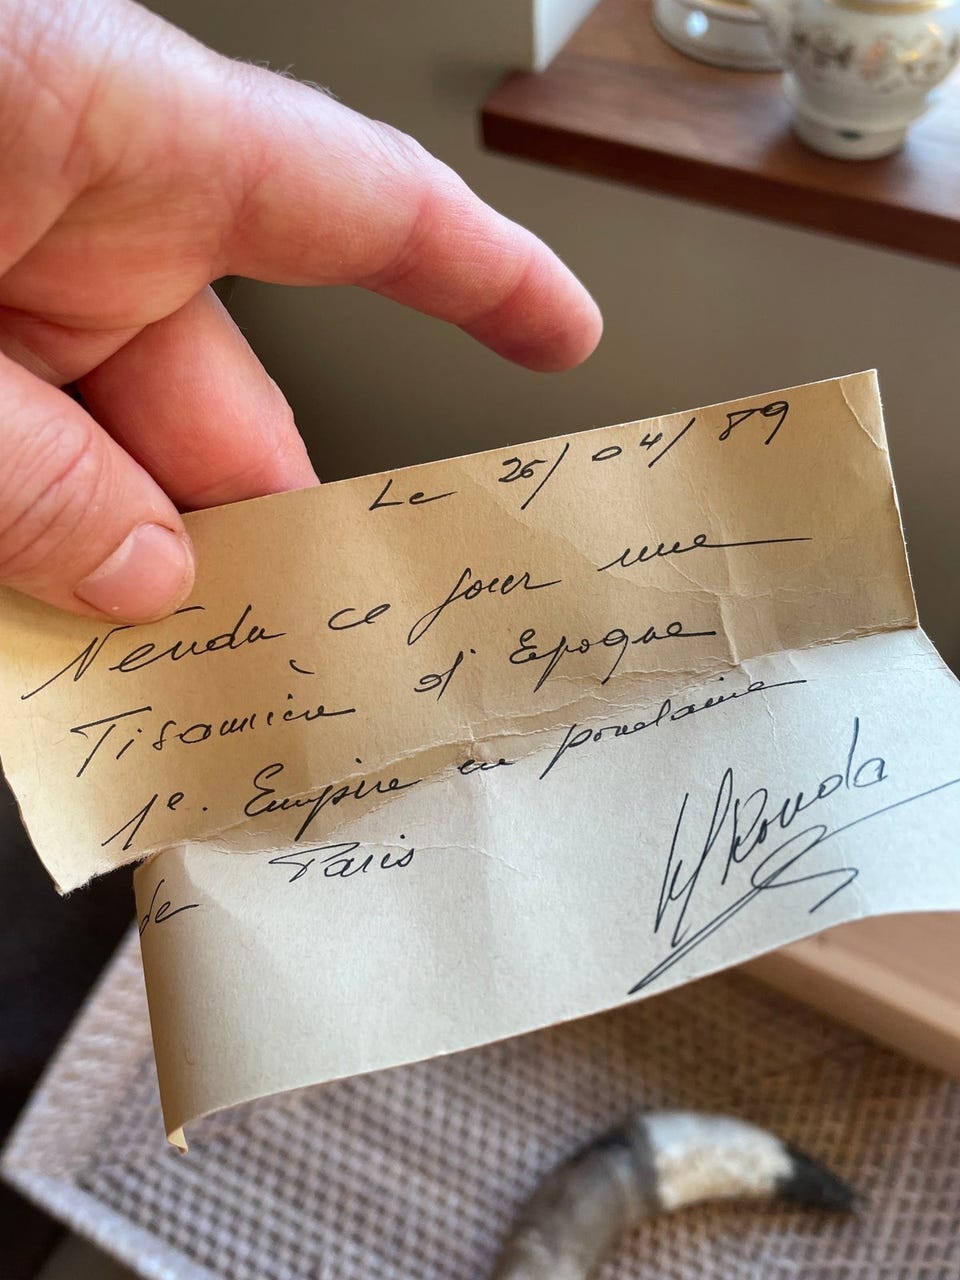 Le 26/04/89
Vendu ce jour une
Tisannière d'Epoque
1e. Empire en porcelaine
de Paris